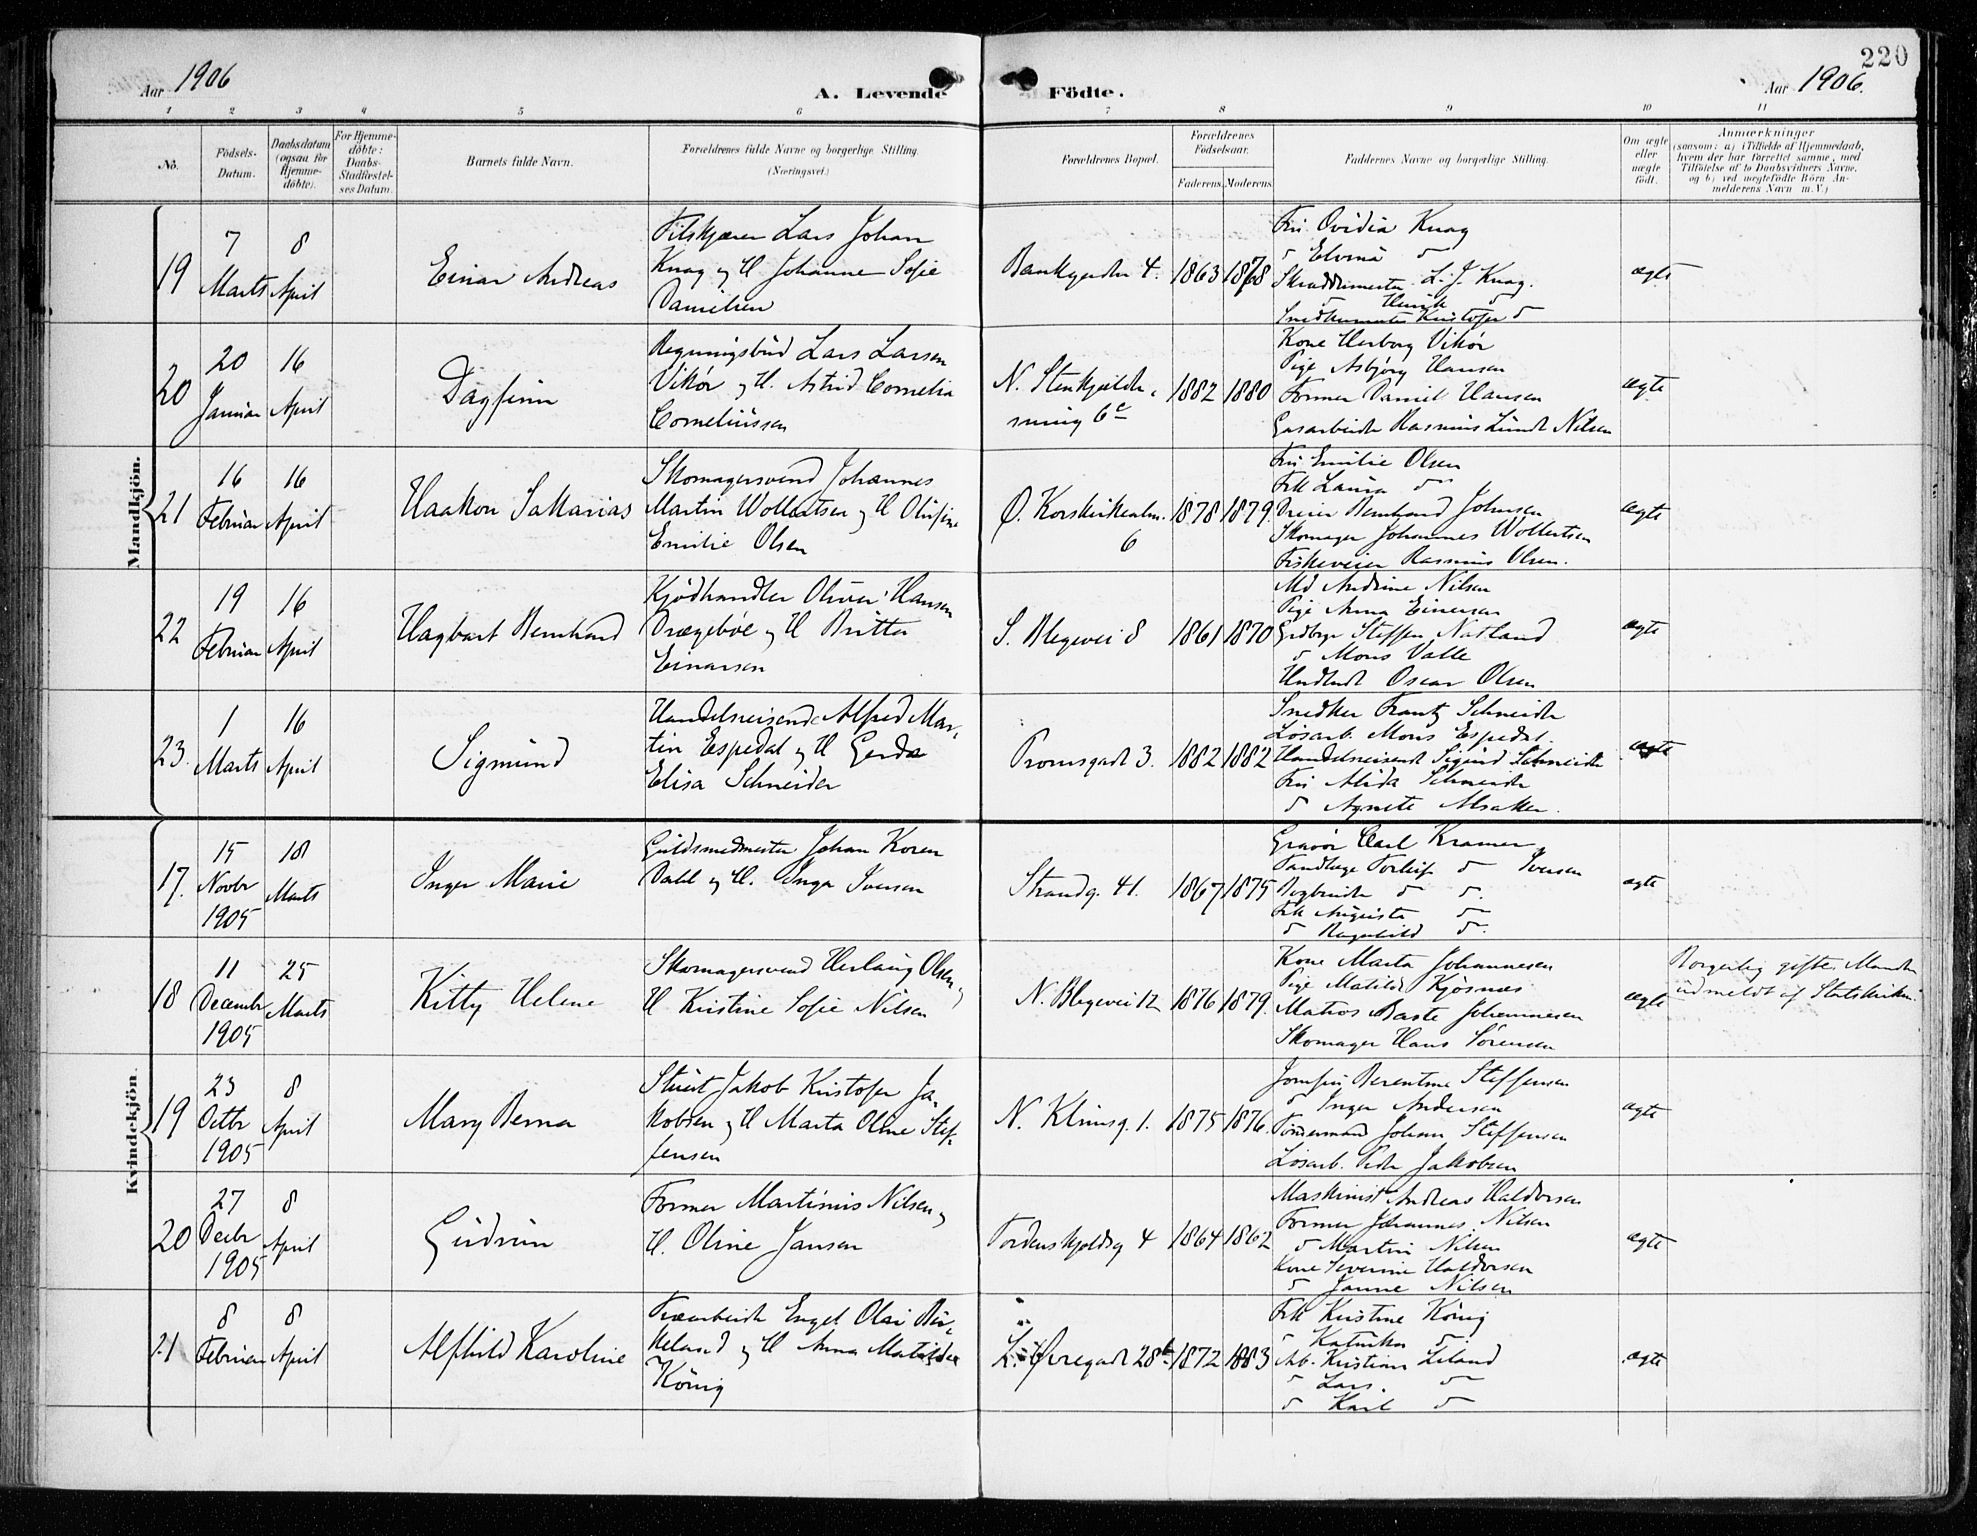 220
Aar 1906
A. Levende
Födte.
Aar 1906.
1 2 3 4 5 6
7 8 9 10 11
No.
Födsels-
Datum.
Daabsdatum
(ogsaa for
Hjemme-
döbte).
For Hjemme-
döbte:
Daabs-
Stadfæstel-
ses Datum.
Barnets fulde Navn.
Forældrenes fulde Navne og borgerlige Stilling.
(Næringsvei.)
Forældrenes Bopæl.
Forældrenes
Födselsaar.
Faderens. Moderens.
Faddernes Navne og borgerlige Stilling.
Om ægte
eller
uægte
födt.
Anmærkninger
(saasom: a) Tilfælde af Hjemmedaab,
hvem der har forrettet samme, med
Tilföielse af to Daabsvidners Navne.
og b) ved uægtefödte Börn An-
melderens Navn m. V.)
Mandkjön.
19
7
Marts
8
April
Einar Andreas
Filskjærer Lars Johan
Knag og H. Johanne Sofie
Danielsen
1863 1868
Fru Ovidia Knag
Skræddermester L. J. Knag.
ægte
20
20
Januar
16
April
Dagfinn
Regningsbud Lars Larsen
Vikør og H. Astrid Cornelia
Corneliussen
6c
1882 1880
Kone Herborg Vikør
Pige Asbjørg Hansen
Former Daniel Hansen
Gasarbeider Rasmus Lund Nilsen
ægte
21
16
Februar
16
April
Haakon Sakarias
Skomagersvend Johannes
Martin Wollertsen og H Olufine
Emilie Olsen
Ø. Korskirkealm.
6
1878 1879.
Fru Emilie Olsen
Frk Laura
Dreier Bernhard Johnsen
Skomager Johannes Wollertsen
Fiskeveier Rasmus Olsen.
ægte
22
19
Februar
16
April
Hagbart Bernhard
Kjødhandler Oliver Hansen
Drægebøe og H Britha
Einarsen
S. Blegevei 8
1861 1870
Md Andrine Nilsen
Pige Anna Einersen
Steffen Natland
Mons Valle
Oscar Olsen
ægte
23.
1
Marts
16
April
Sigmund
Handelsreisende Alfred Mar-
tin Espedal og H Gerda
Elisa Schneider
Promsgade 3.
1882 1882
Snedker Frantz Schneider
Løsarb. Mons Espedal.
Handelsreisende Sigurd Schneider
Fru Alida Schneider
Agnete Alsaker.
ægte
Kvindekjön.
17.
15
Novbr
1905
18
Marts
Inger Marie
Guldsmedmester Johan Koren
Dahl og H. Inga Iversen
Strandg. 41.
1867 1875
Gravør Carl Kramer
Tandlæge Torleif Iversen
Bogbinder
Frk Augusta
Ragnhild
ægte
18
11
Decembr
1905
25
Marts
Kitty Helene
Skomagersvend Herlaug Olsen og
H Kristine Sofie Nilsen
N. Blegevei 12
1876 1879.
Kone Marta Johannesen
Pige Matild Kjøsnæs
Matros Baste Johannesen
Skomager Hans Sørensen
ægte
Borgerlig gifte. Manden
udmeldt af Statskirken.
19
23
Octbr
1905
8
April
Mary Berna
Stuert Jakob Kristofer Ja-
kobsen og H Marta Oline Stef-
fensen
N. Klimsg. 1.
1875 1876.
Jomfru Berentine Steffensen
Inger Andersen
Tømmermand Johan Steffensen
Løsarb. Peder Jakobsen
ægte
20
27
Decbr
1905
8
April
Gudrun
Former Martinius Nilsen og
H. Oline Jansen
Tordenskjoldsg 4
1864 1862
Maskinist Andreas Haldorsen
Former Johannes Nilsen
Martin Nilsen
Kone Severine Haldorsen
Janne Nilsen
ægte
21
8
Februar
8
April
Alfhild Karoline
Træarbeider Engel Olai Bir-
keland og H Anna Matilde
König
L. Øvregade 28b
1872 1883
Frk Kristine König
Katinka
Arb. Kristian Leland
Lars.
Karl
ægte